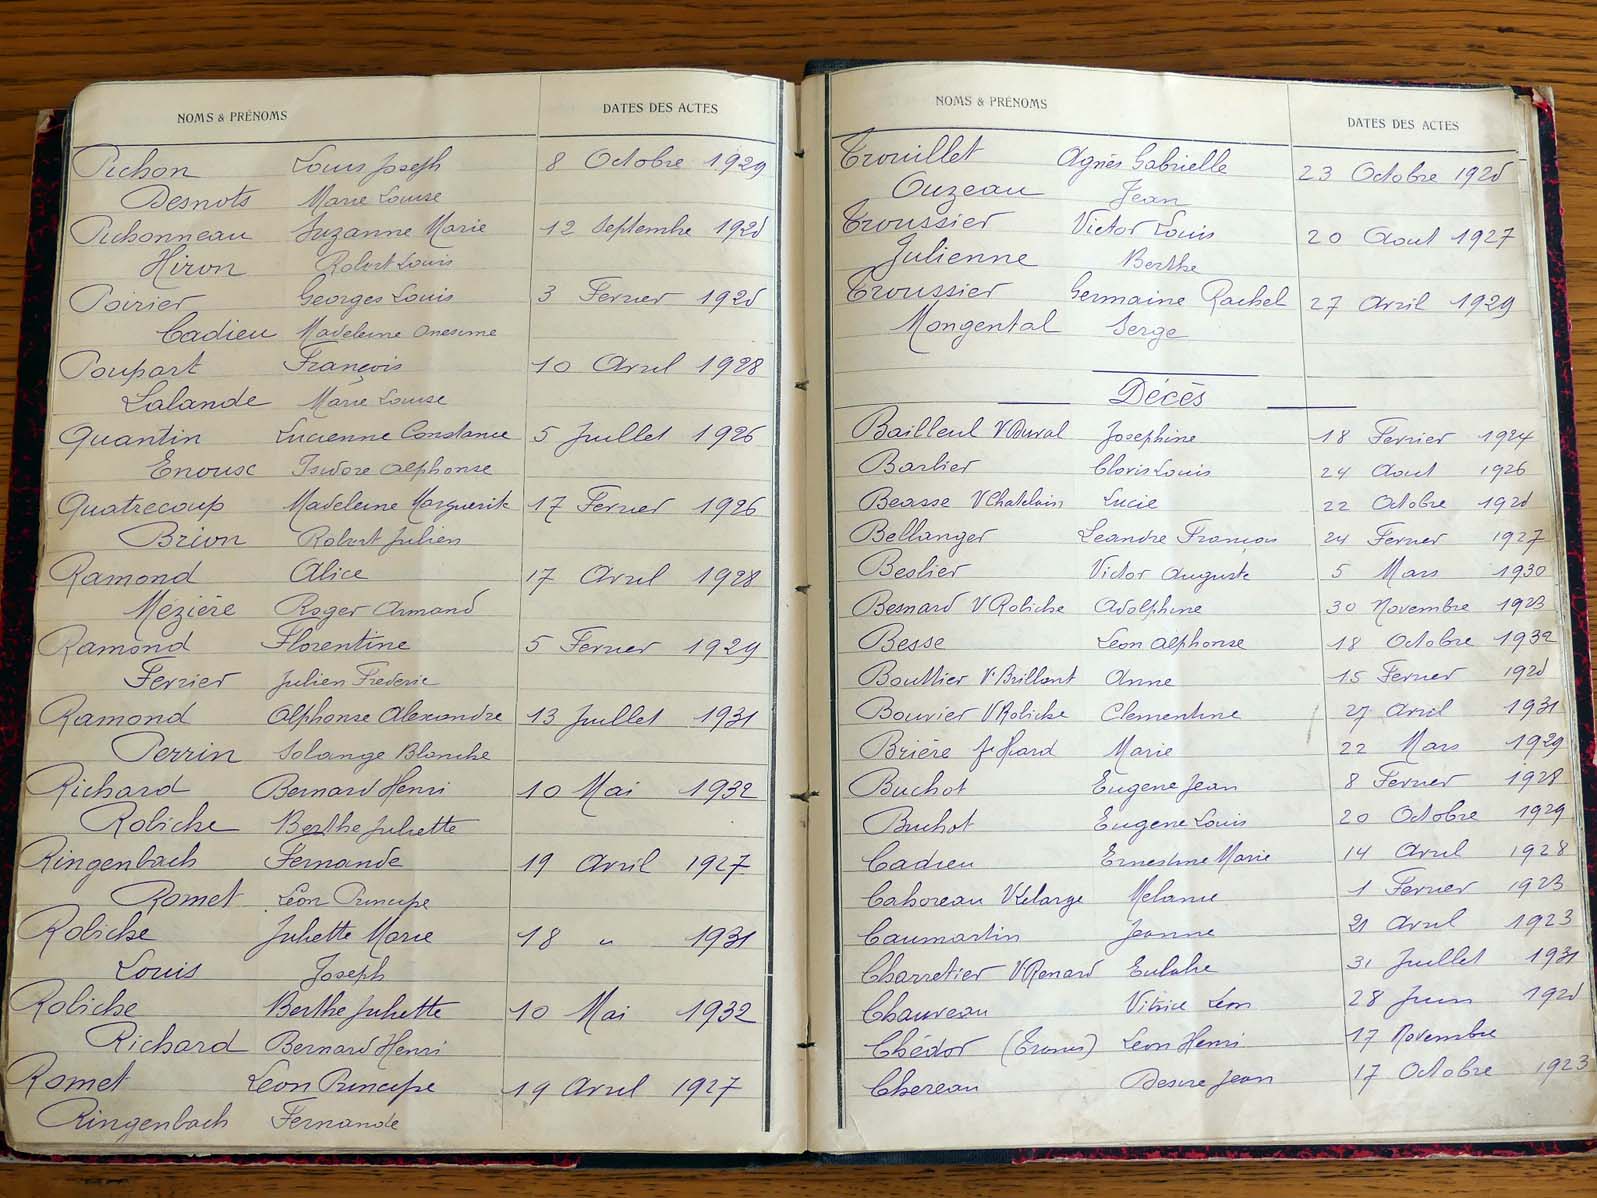 NOMS & PRÉNOMS DATES DES ACTES
Pichon Louis Joseph 8 Octobre 1929
Desnots Marie Louise
Pichonneau Suzanne Marie 12 Septembre 1925
Hiron Robert Louis
Poirier Georges Louis 3 Fevrier 1925
Cadieu Madeleine Onesime
Poupart François 10 Avril 1928
Lalande Marie Louise
Quantin Lucienne Constance 5 Juillet 1926
Enousc Isidore Alphonse
Quatrecoup Madeleine Marguerite 17 Fevrier 1926
Brion Robert Julien
Ramond Alice 17 Avril 1928
Mézière Roger Armand
Ramond Florentine 5 Fevrier 1929
Ferrier Julien Frederic
Ramond Alphonse Alexandre 13 Juillet 1931
Perrin Solange Blanche
Richard Bernard Henri 10 Mai 1932
Robiche Berthe Juliette
Ringenbach Fernande 19 Avril 1927
Romet Léon Principe
Robiche Juliette Marie 18 " 1931
Louis Joseph
Robiche Berthe Juliette 10 Mai 1932
Richard Bernard Henri
Romet Léon Principe 19 Avril 1927
Ringenbach Fernande
NOMS & PRÉNOMS DATES DES ACTES
Trouillet Agnès Gabrielle 23 Octobre 1925
Ouzeau Jean
Troussier Victor Louis 20 Aout 1927
Julienne Berthe
Troussier Germaine Rachel 27 Avril 1929
Mongental Serge
Décès
Bailleul V Duval Josephine 18 Fevrier 1924
Barbier Cloris Louis 24 Aout 1926
Beasse V Chatelain Lucie 22 Octobre 1925
Bellanger Leandre François 24 Fevrier 1927
Beslier Victor Auguste 5 Mars 1930
Besnard V Robiche Adolphine 30 Novembre 1923
Besse Léon Alphonse 18 Octobre 1932
Bouttier V Brillant Anne 15 Fevrier 1925
Bouvier V Robiche Clementine 27 Avril 1931
Brière Marie 22 Mars 1929
Buchot Eugene Jean 8 Fevrier 1928
Buchot Eugene Louis 20 Octobre 1929
Cadieu Ernestine Marie 14 Avril 1928
Cahoreau V Lelarge Melanie 1 Fevrier 1923
Caumartin Jeanne 21 Avril 1923
Charretier V Renard Eulalie 31 Juillet 1931
Chauveau Vitrice Léon 28 Juin 1925
Chédor Leon Henri 17 Novembre
Chereau Desire Jean 17 Octobre 1923